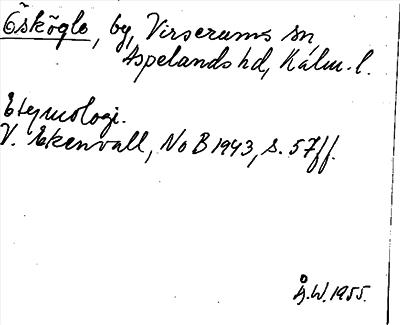 Öskögle, by, Virserums sn,
Aspelands hd, Kalm. l.
Etymologi.
V. Ekenvall, NoB 1943, s. 57ff.
Å.W. 1955.